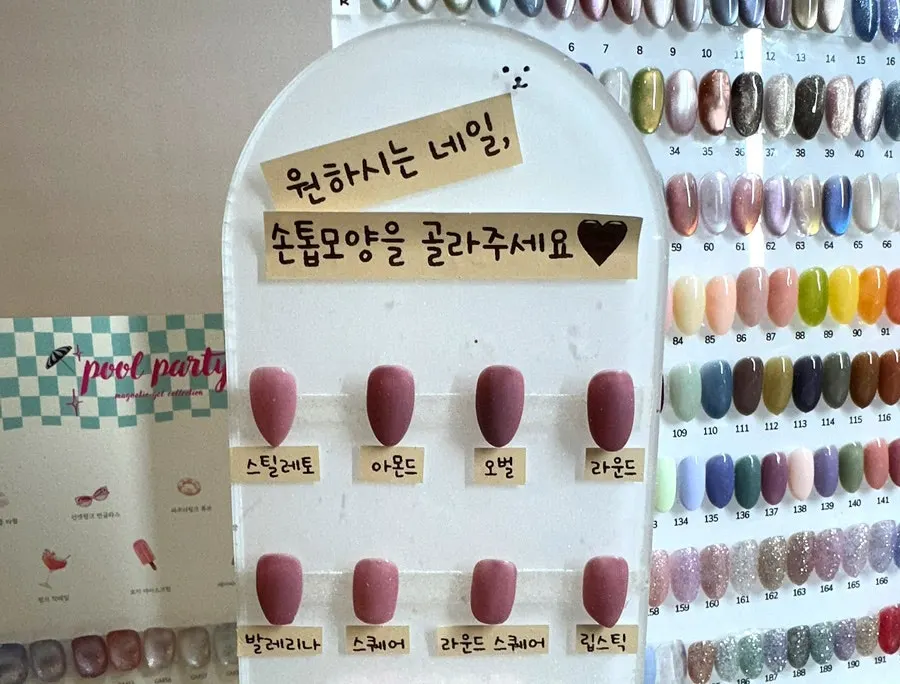 원하시는 네일,
손톱모양을 골라주세요♥
스틸레토 아몬드 오벌 라운드
발레리나 스퀘어 라운드 스퀘어 립스틱
pool party
magnetic gel collection
6 7 8 9 10 11 12 13 14 15 16
34 35 36 37 38 39 40 41
59 60 61 62 63 64 65 66
84 85 86 87 88 89 90 91
109 110 111 112 113 114 115 116
134 135 136 137 138 139 140 141
159 160 161 162 163 164 165 166
187 188 189 190 191